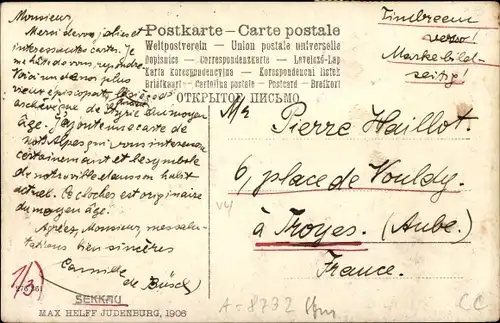 Monsieur,
Merci de vos jolies et
intéressantes cartes. Je
me hâte de vous répondre.
Voici un de nos plus
vieux épiscopat,
de Styrie du moyen
âge. J'ajoute une carte de
nos Alpes qui vous intéressera
certainement et le symbole
de notre ville
Ce clocher est originaire
du moyen âge.
Agréez, Monsieur, mes salu-
tations bien sincères
Camille
de Büsch
Postkarte - Carte postale
Weltpostverein - Union postale universelle
Dopisnice - Correspondenzkarte - Levelező-Lap
Karta korespondencyjna - Korespondenčni listek
Briefkaart - Cartolina postale - Postcard - Brefkort
ОТКРЫТОЕ ПИСЬМО
Timbre au
verso!
Marke bild-
seitig!
Mr
Pierre Haillot.
6, place de Vouldy.
à Troyes. (Aube.)
France.
SEKKAU
MAX HELFF JUDENBURG, 1906
A-8732
CC